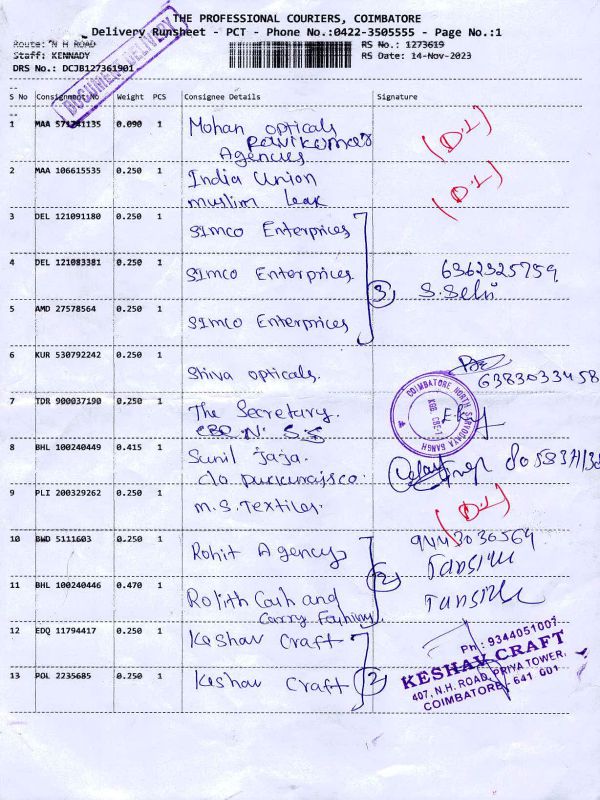 THE PROFESSIONAL COURIERS, COIMBATORE
Delivery Runsheet - PCT - Phone No.:0422-3505555 - Page No.:1
Route: N H ROAD
RS No.: 1273619
Staff: KENNADY
RS Date: 14-Nov-2023
DRS No.: DCJB127361901
DOCUMENT DELIVERY
S No Consignment No Weight PCS Consignee Details Signature
1 MAA 571241135 0.090 1 Mohan opticals
Ravikumar
Agencies
(D.L)
2 MAA 106615535 0.250 1 India Union
muslim Leak
(D.L)
3 DEL 121091180 0.250 1 SIMCO Enterprices
4 DEL 121083381 0.250 1 SIMCO Enterprices
3
6362325759
S.Selvi
5 AMD 27578564 0.250 1 SIMCO Enterprices
6 KUR 530792242 0.250 1 Shiva opticals.
6383033458
7 TDR 900037190 0.250 1 The Secretary.
COIMBATORE NORTH SRIODAYA SANGH
8 BHL 100240449 0.415 1 Sunil jaja.
c/o
9 PLI 200329262 0.250 1 M.S. Textiles.
(D.L)
10 BWD 5111603 0.250 1 Rohit Agency
2
9443036564
11 BHL 100240446 0.470 1 Rojith Cash and
Carry
12 EDQ 11794417 0.250 1 Keshav Craft
13 POL 2235685 0.250 1 Keshav Craft
2
Ph : 9344051001
KESHAV CRAFT
407, N.H. ROAD, PRIYA TOWER,
COIMBATORE - 641 001